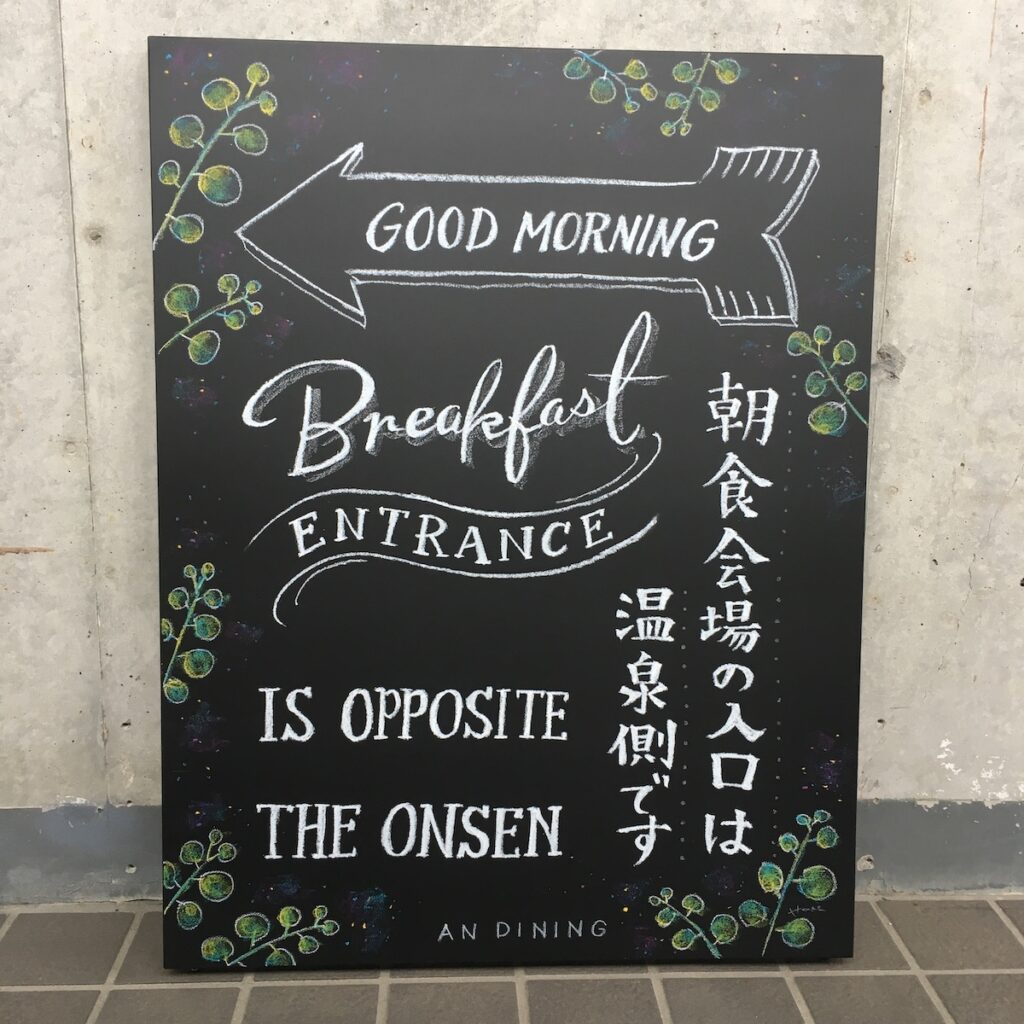 GOOD MORNING
Breakfast
ENTRANCE
IS OPPOSITE
THE ONSEN
朝食会場の入口は
温泉側です
AN DINING